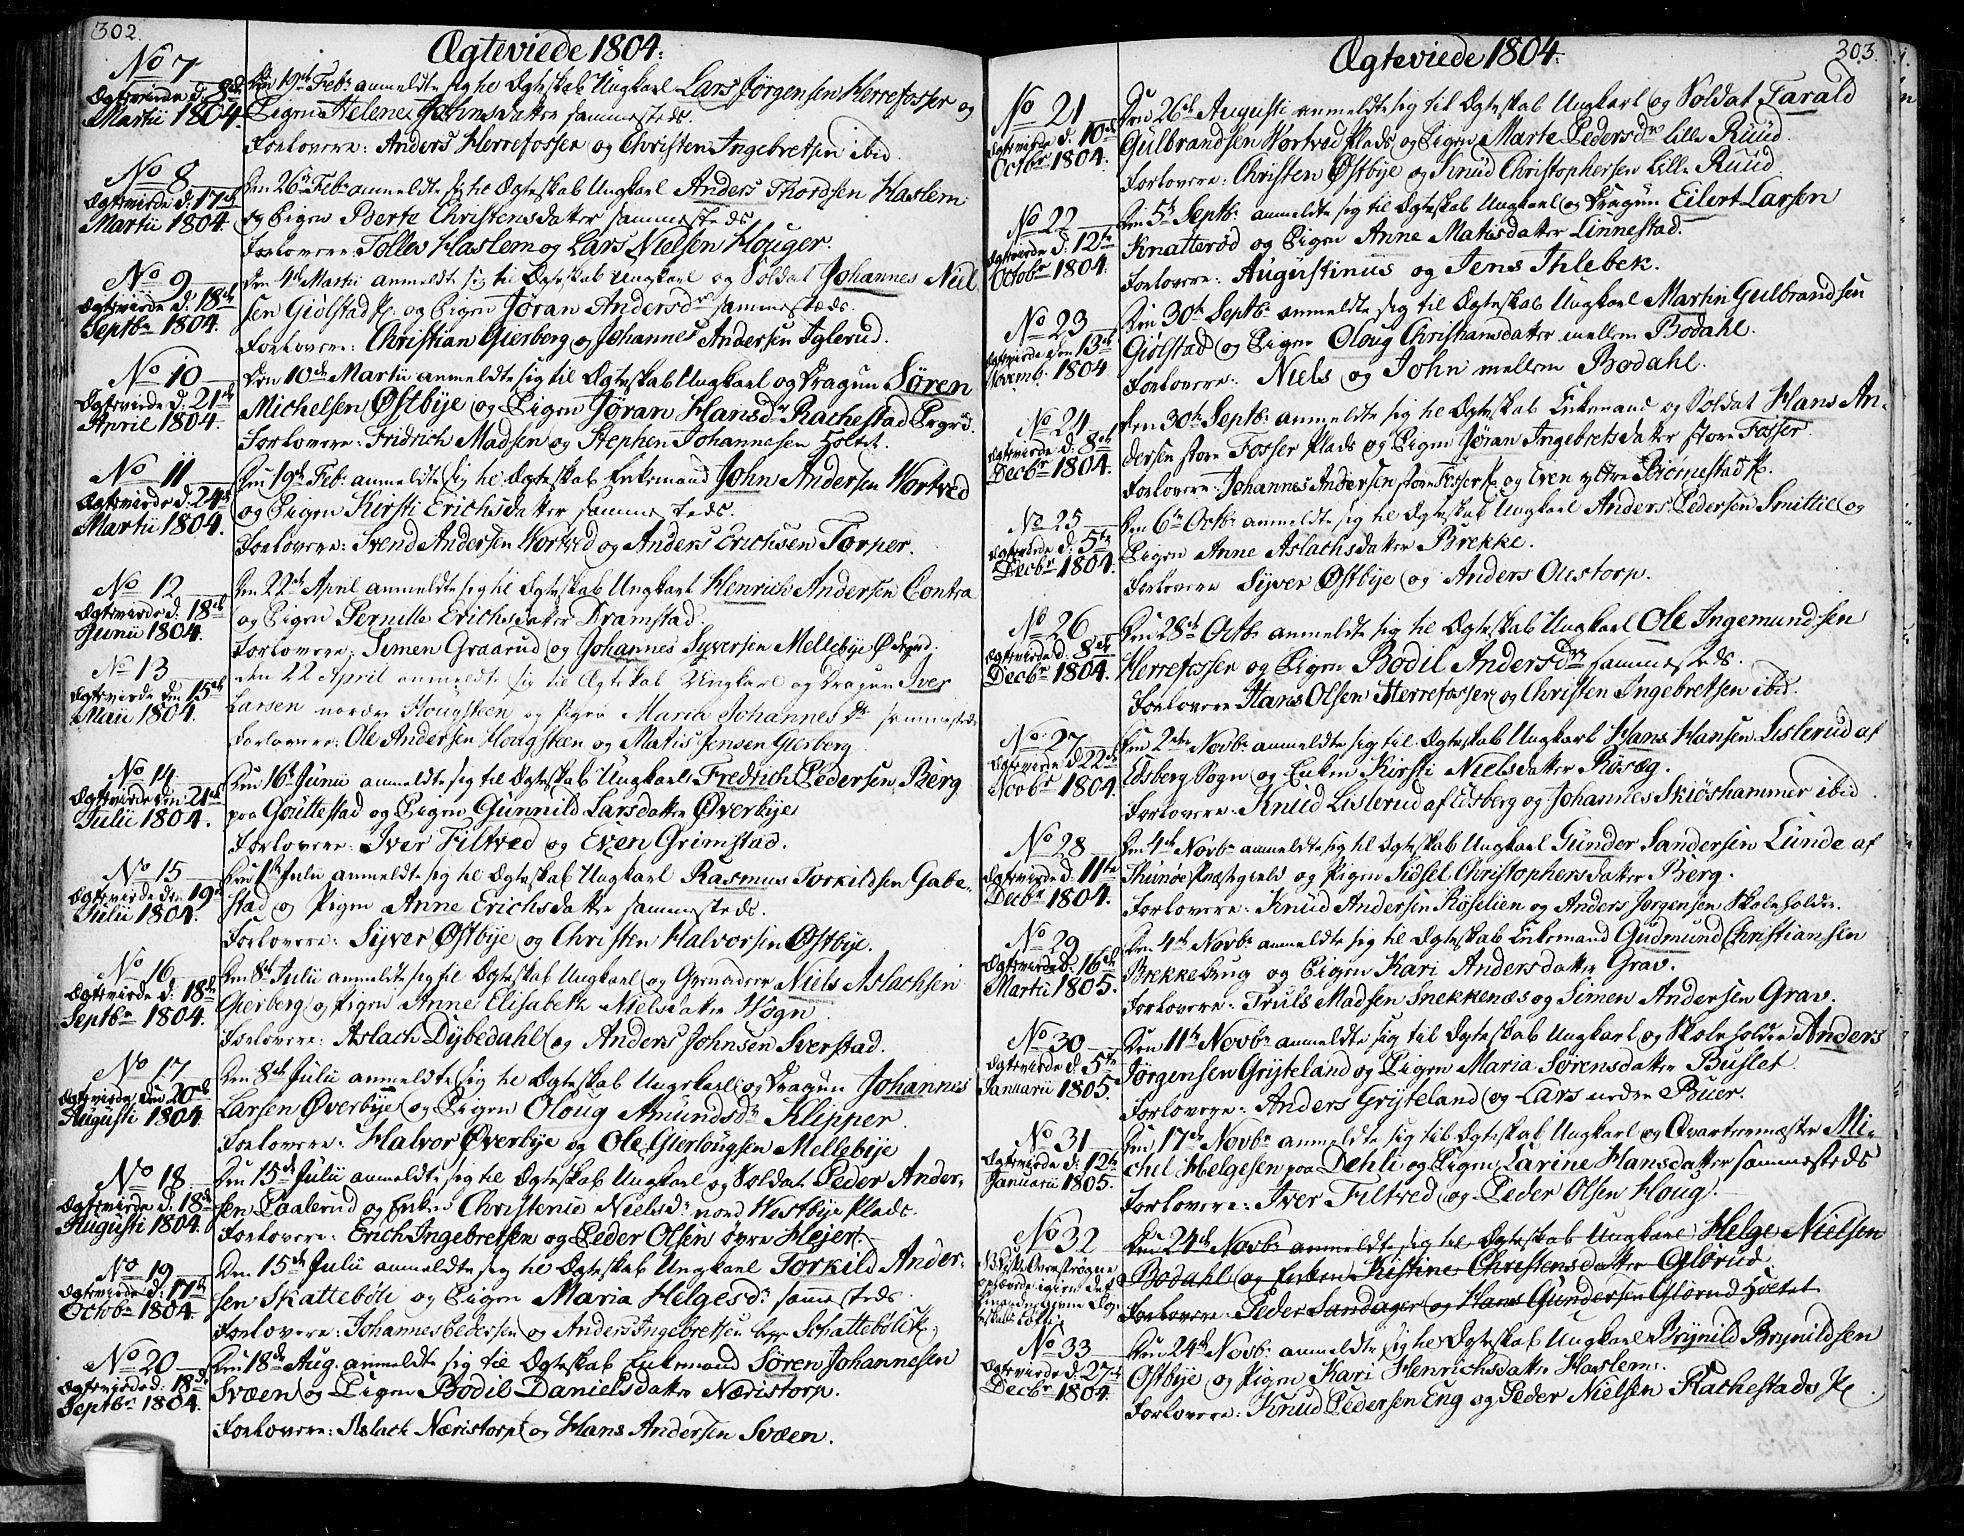 302.
Ægteviede 1804.
No 7
Ægteviede d. 8de
Martii 1804.
Den 19de Febr anmeldte sig til Ægteskab Ungkarl Lars Jørgensen Herrefosser og
Pigen Helene Johnsdatter sammesteds.
Forlovere: Anders Herrefossen og Christen Ingebretsen ibid.
No 8
Ægteviede d: 17de
Martii 1804.
Den 26de Febr anmeldte sig til Ægteskab Ungkarl Anders Thordsen Haslem
og Pigen Berte Christensdatter sammesteds.
Forlovere: Tollev Haslem og Lars Nielsen Houger.
No 9
Ægteviede d: 18de
Septbr 1804.
Den 4de Martii anmeldte sig til Ægteskab Ungkarl og Soldat Johannes Niel
sen Giølstad P. og Pigen Jøran Andersdr sammesteds.
Forlovere: Christian Gierberg og Johannes Andersen Iglerud.
No 10
Ægteviede d. 21de
April 1804.
Den 10de Martii anmeldte sig til Ægteskab Ungkarl og Dragun Søren
Michelsen Østbye og Pigen Jøran Hansdr Rachestad
Forlovere: Fridrich Madsen og Stephen Johannesen Holtet.
No 11
Ægteviede d. 24de
Martii 1804.
Den 19de Febr anmeldte sig til Ægteskab Enkemand John Andersen Wortved
og Pigen Kirsti Erichsdatter sammesteds.
Forlovere: Svend Andersen Wortved og Anders Erichsen Torper.
No 12
Ægteviede d. 18de
Junii 1804.
Den 22de April anmeldte sig til Ægteskab Ungkarl Henrich Andersen Contra
og Pigen Pernille Erichsdatter Dramstad.
Forlovere: Simen Graarud og Johannes Syversen Mellebye
No 13
Ægteviede den 15de
Maii 1804.
den 22 April anmeldte sig til Ægteskab Ungkarl og Dragun Iver
Larsen nordre Hougsteen og Pigen Maria Johannesdr sammesteds
Forlovere: Ole Andersen Hougsteen og Matis Jensen Gierberg
No 14
Ægteviede den 21de
Julii 1804.
Den 16de Junii anmeldte sig til Ægteskab Ungkarl Fredrich Pedersen Berg
paa Gouttestad og Pigen Gunnild Larsdatter Øverbye
Forlovere: Iver Filtved og Even Grimstad.
No 15
Ægteviede den 19de
Julii 1804.
Den 1de Julii anmeldte sig til Ægteskab Ungkarl Rasmus Torkildsen Gabe-
stad og Pigen Anne Erichsdatter sammesteds.
Forlovere: Syver Østbye og Christen Halvorsen Østbye.
No 16
Ægteviede d: 18de
Septbr 1804.
Den 8de Julii anmeldte sig til Ægteskab Ungkarl og Grenadeer Niels Aslachsen
Gierberg og Pigen Anne Elisabeth Nielsdatter Wogn.
Forlovere: Aslach Dybedahl og Anders Johnsen Sverstad.
No 17
Ægteviede den 20de
Augusti 1804
Den 8de Julii anmeldte sig til Ægteskab Ungkarl og Dragun Johannes
Larsen Øverbye og Pigen Oloug Amundsdr Klipper
Forlovere: Halvor Øverbye og Ole Gierlougsen Mellebye
No 18
Ægteviede d. 18de
Augusti 1804.
Den 15de Julii anmeldte sig til Ægteskab Ungkarl og Soldat Peder Ander-
sen Paalerud og Enken Christence Nielsdr nord Westbye Plads.
Forlovere: Erich Ingebretsen og Peder Olsen øvre Hejer.
No 19
Ægteviede d: 17de
Octobr 1804.
Den 15de Julii anmeldte sig til Ægteskab Ungkarl Torkild Ander-
sen Skattebøli og Pigen Maria Helgesdr sammesteds.
Forlovere: Johannes Pedersen og Anders Ingebretsen Schattebøli P.
No 20
Ægteviede d: 18de
Septbr 1804.
Den 18de Aug. anmeldte sig til Ægteskab Enkemand Søren Johannesen
Svøen og Pigen Bodil Danielsdatter Næristorp.
Forlovere: Aslach Næristorp og Hans Andersen Svøen.
303.
Ægteviede 1804.
No 21
Ægteviede d. 10de
Octobr 1804.
Den 26de Augusti anmeldte sig til Ægteskab Ungkarl og Soldat Tarald
Gulbrandsen Wortved Plads og Pigen Marte Pedersdr lille Ruud.
Forlovere: Christen Østbye og Knud Christophersen lille Ruud
No 22
Ægteviede d: 12te
Octobr 1804.
Den 5te Septbr anmeldte sig til Ægteskab Ungkarl og Dragun Eilert Larsen
Knatterød og Pigen Anne Matisdatter Linnestad.
Forlovere: Augustinus og Jens Ihlebek.
No 23
Ægteviede den 13de
Novemb. 1804
Den 30te Septbr anmeldte sig til Ægteskab Ungkarl Martin Gulbrandsen
Giølstad og Pigen Oloug Christiansdatter mellem Bodahl.
Forlovere: Niels og John mellem Bodahl.
No 24
Ægteviede d: 8de
Decbr 1804.
Den 30te Septbr anmeldte sig til Ægteskab Enkemand og Soldat Hans An-
dersen store Fosser Plads og Pigen Jøran Ingebretsdatter store Fosser.
Forlovere: Johannes Andersen store Fosser P. og Even ytre Biørnestad P.
No 25
Ægteviede d: 5te
Decbr 1804.
Den 6te Octbr anmeldte sig til Ægteskab Ungkarl Anders Pedersen Smittil og
Pigen Anne Aslachsdatter Brekke.
Forlovere Syver Østbye og Anders Oustorp.
No 26
Ægteviede d: 8de
Decbr 1804.
Den 28de Octbr anmeldte sig til Ægteskab Ungkarl Ole Ingemundsen
Herrefossen og Pigen Bodil Andersdr sammesteds.
Forlovere Hans Olsen Herrefosser og Christen Ingebretsen ibid.
No 27
Ægteviede d 22de
Novbr 1804.
Den 2den Novbr anmeldte sig til Ægteskab Ungkarl Hans Hansen Lislerud af
Edsberg Sogn og Enken Kirsti Nielsdatter Rosæg.
Forlovere: Knud Lislerud af Edsberg og Johannes Skiøshammer ibid
No 28
Ægteviede d. 11te
Decbr 1804.
Den 4de Novbr anmeldte sig til Ægteskab Ungkarl Gunder Sandersen Lunde af
Præstegield og Pigen Sidsel Christophersdatter Berg.
Forlovere: Knud Andersen Røselien og Anders Jørgensen Skoleholder.
No 29
Ægteviede d: 16de
Martii 1805.
Den 4de Novbr anmeldte sig til Ægteskab Enkemand Gudmund Christiansen
Brekke Brug og Pigen Kari Andersdatter Grav.
Forlovere: Truls Madsen Snekkenæs og Simen Andersen Grav.
No 30
Ægteviede d: 5te
Januarii 1805
Den 11te Novbr anmeldte sig til Ægteskab Ungkarl og Skoleholder Anders
Jørgensen Gryteland og Pigen Maria Sørensdatter Buslet.
Forlovere: Anders Gryteland og Lars nedre Buer.
No 31
Ægteviede d: 12te
Januarii 1805.
Den 17de Novbr anmeldte sig til Ægteskab Ungkarl og Qvarteermester Mi-
chel Helgesen paa Dehli og Pigen Larine Hansdatter sammesteds
Forlovere: Iver Filtved og Peder Olsen Houg.
No 32
Den 24de Novbr anmeldte sig til Ægteskab Ungkarl Helge Nielsen
Bodahl og Enken Kistine Christensdatter Glørud
Forlovere: Peder Sandager og Hans Gundersen Glørud Holtet
No 33
Ægteviede d. 27de
Decbr 1804.
Den 24de Novbr anmeldte sig til Ægteskab Ungkarl Brynild Brynildsen
Ostbye og Pigen Kari Henrichsdatter Haslem.
Forlovere: Knud Pedersen Eng og Peder Nielsen Rachestads P.